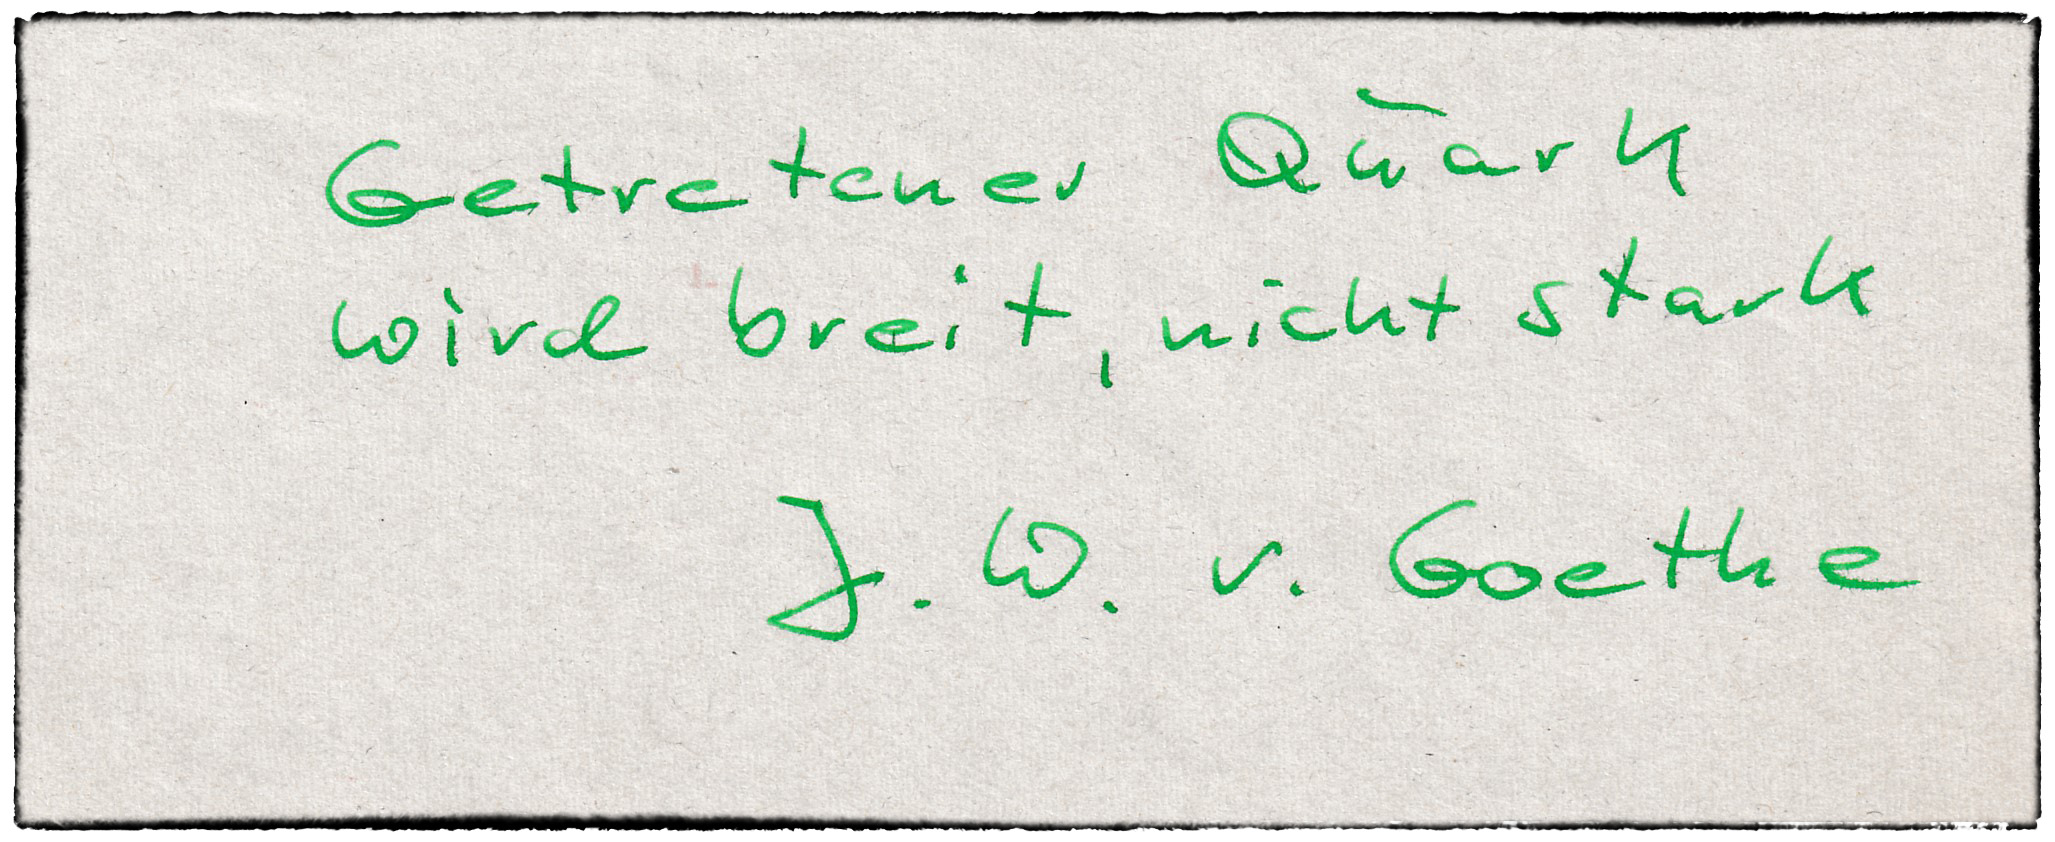 Getretener Quark
wird breit, nicht stark
J. W. v. Goethe